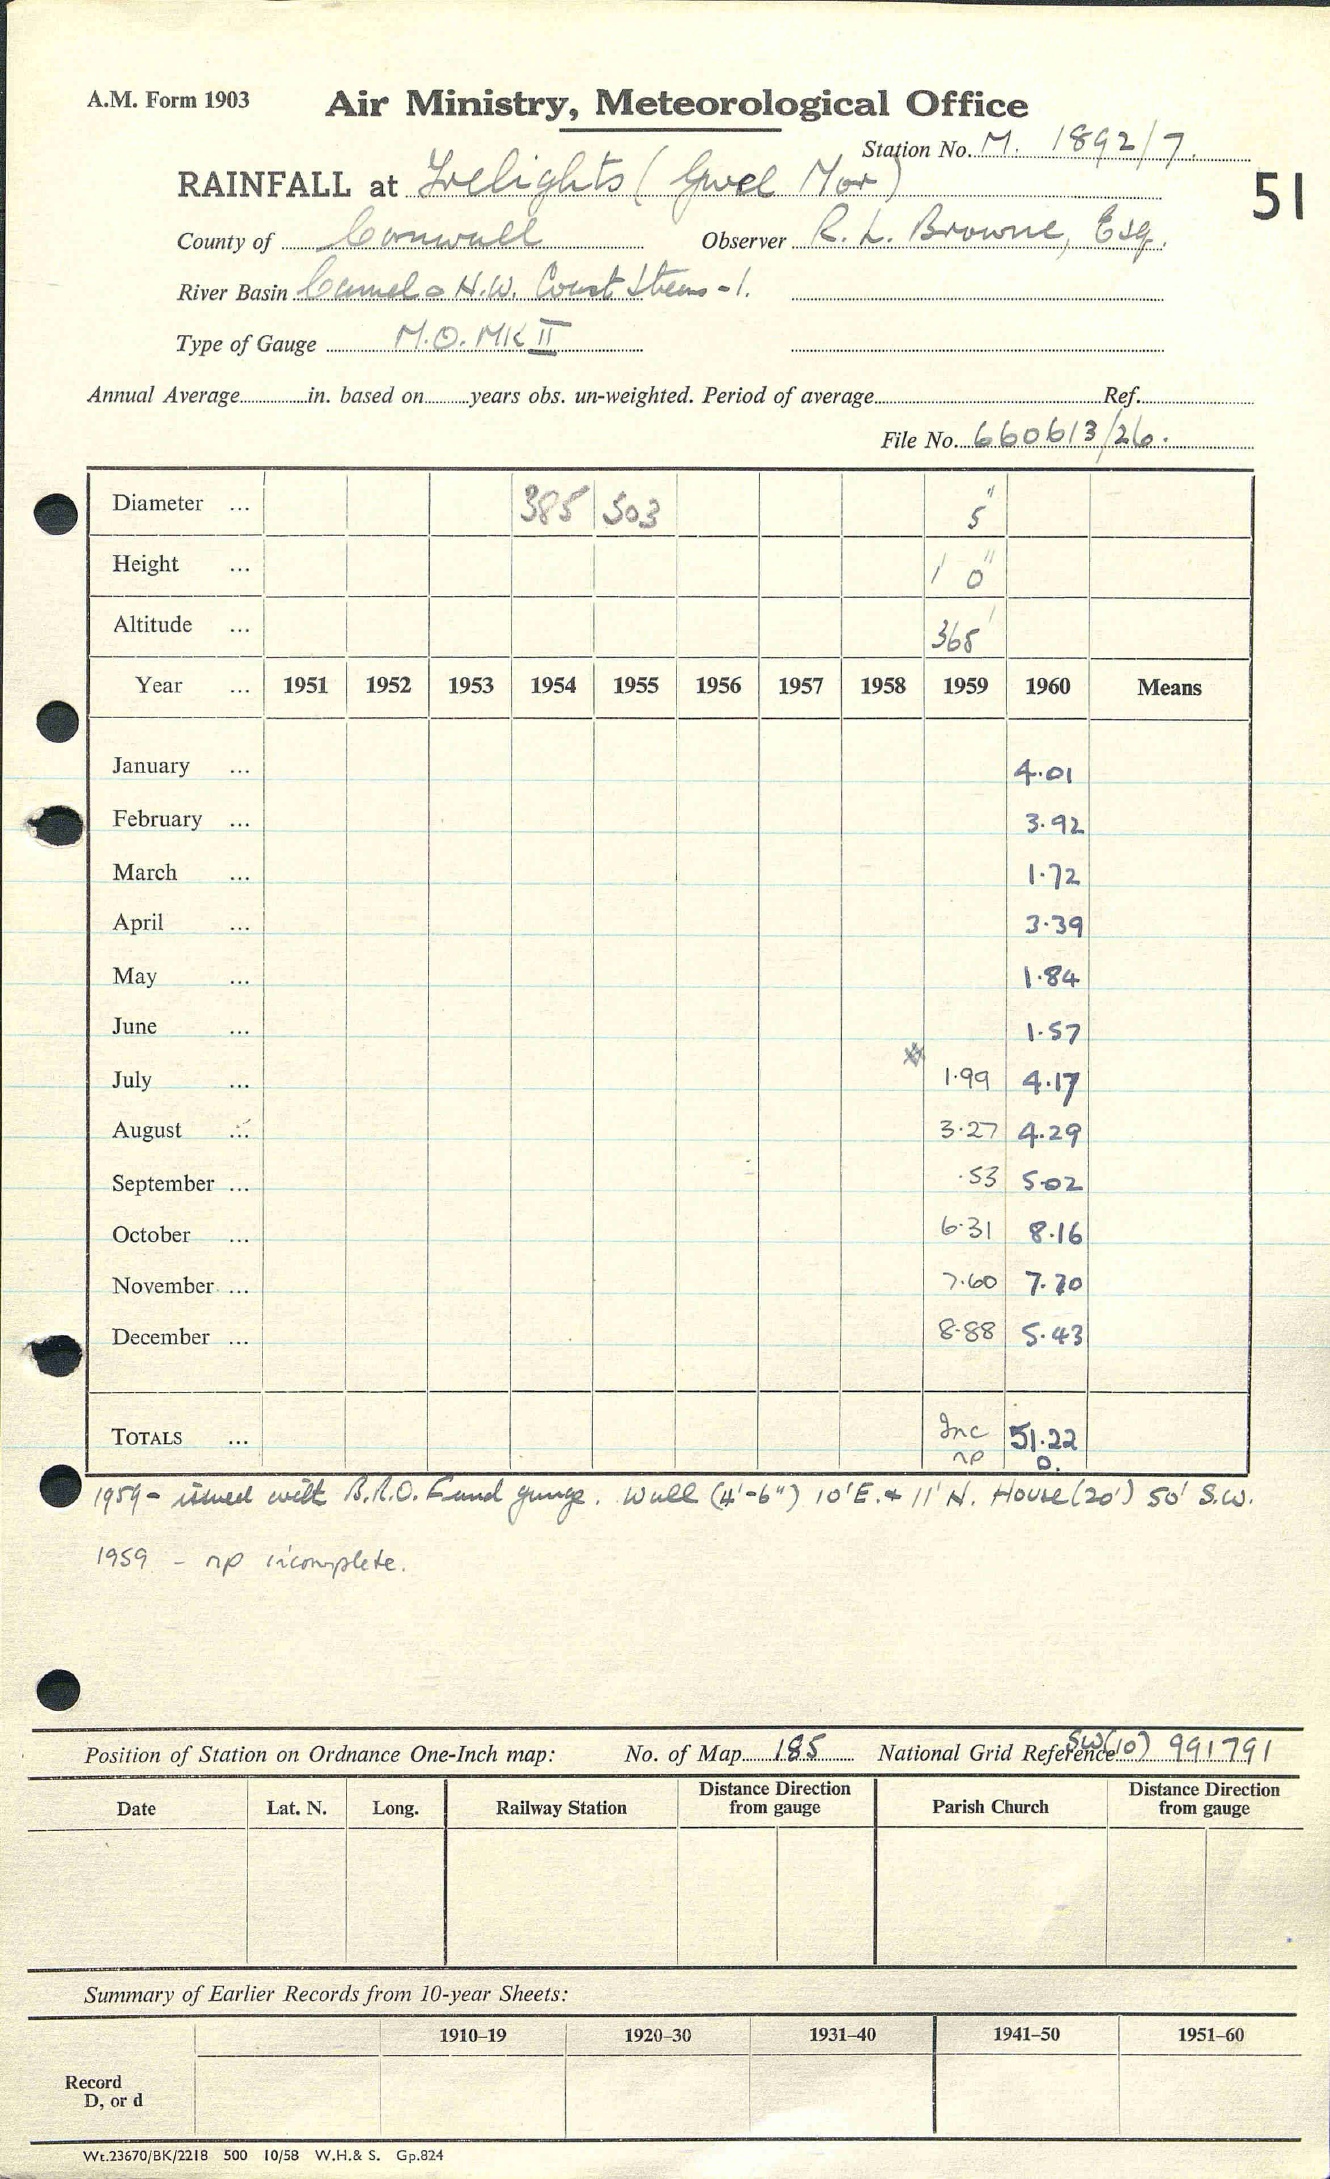 A.M. Form 1903 Air Ministry, Meteorological Office
Station No. M. 1892/7.
RAINFALL at Trelights (Gwel Mor)
51
County of Cornwall Observer R. L. Browne, Esq.
River Basin Camel & N.W. Coast Streams - 1.
Type of Gauge M.O. MK II
Annual Average in. based on years obs. un-weighted. Period of average Ref.
File No. 660613/26.
Diameter ... 385 503 5"
Height ... 1' 0"
Altitude ... 365'
Year ... 1951 1952 1953 1954 1955 1956 1957 1958 1959 1960 Means
January ... 4.01
February ... 3.92
March ... 1.72
April ... 3.39
May ... 1.84
June ... 1.57
July ... 1.99 4.17
August ... 3.27 4.29
September ... .53 5.02
October ... 6.31 8.16
November ... 7.60 7.70
December ... 8.88 5.43
TOTALS ... Inc 51.22
np D.
1959 - issued with B.R.O. Fund gauge. Wall (4'-6") 10' E. & 11' N. House (20') 50' S.W.
1959 - np incomplete.
Position of Station on Ordnance One-Inch map: No. of Map 185 National Grid Reference SW(10) 991791
Date Lat. N. Long. Railway Station Distance Direction from gauge Parish Church Distance Direction from gauge
Summary of Earlier Records from 10-year Sheets:
1910–19 1920–30 1931–40 1941–50 1951–60
Record
D, or d
Wt.23670/BK/2218 500 10/58 W.H.& S. Gp.824